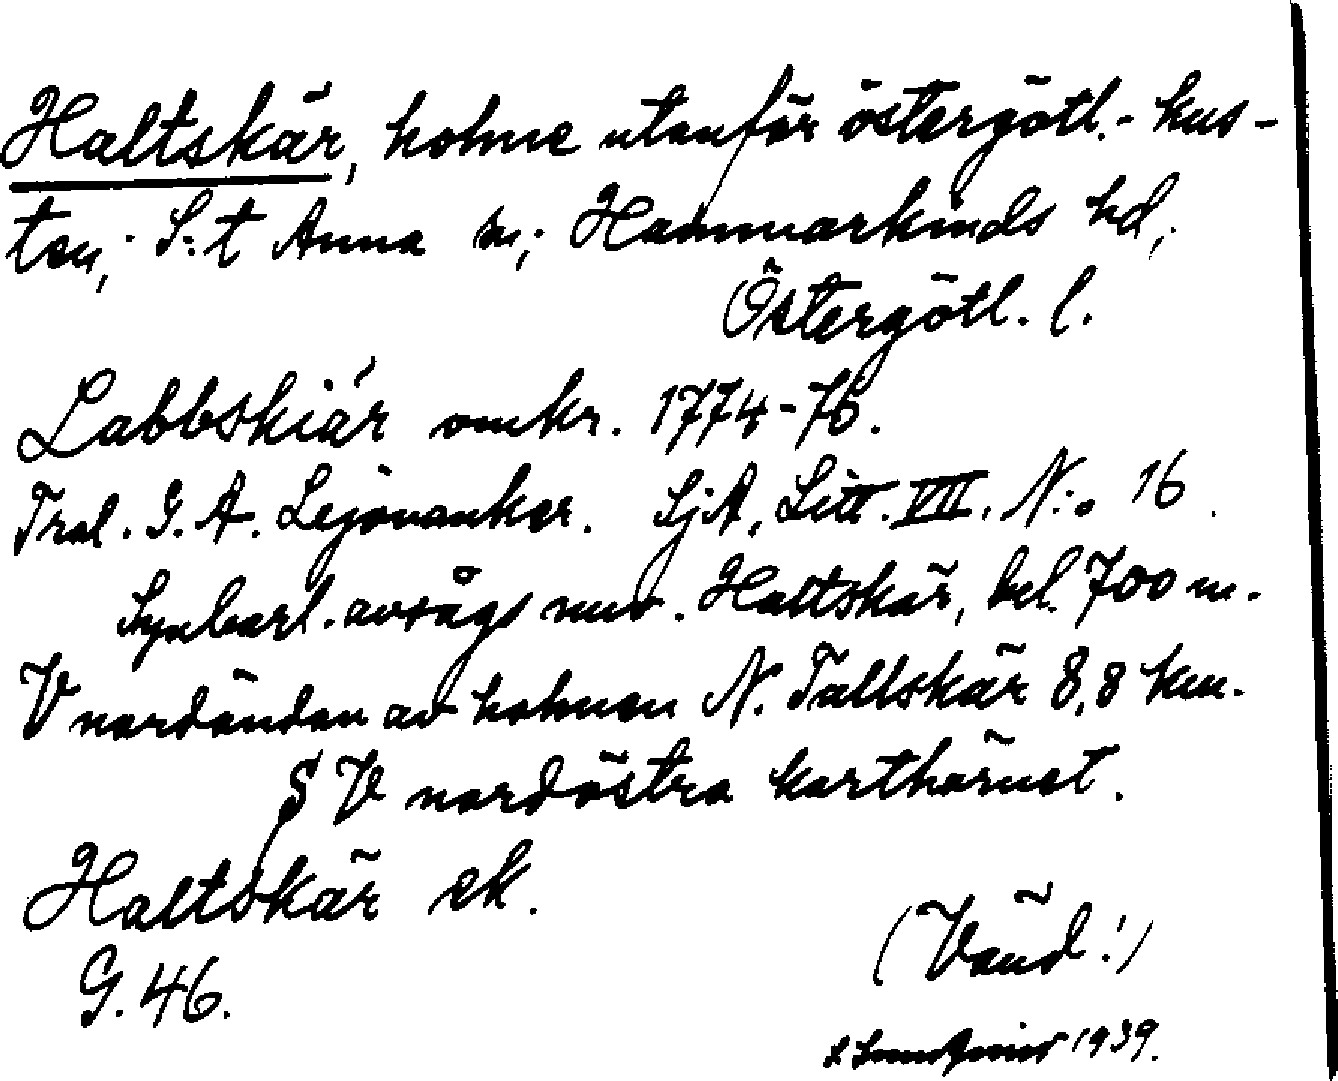 Haltskär, holme utanför östergötl.- kus-
ten; S:t Anna sn; Hammarkinds hd;
Östergötl. l.
Labbskiär omkr. 1774-76.
Trol. G. A. Lejonanker. SjA, Litt. VII. N:o 16.
Synbarl. avsågs nuv. Haltskär, bel. 700 m.
V nordändan av holmen N. Tallskär 8,8 km.
SV nordöstra karthörnet.
Haltskär ek.
G. 46.
(Vänd!)
1939.